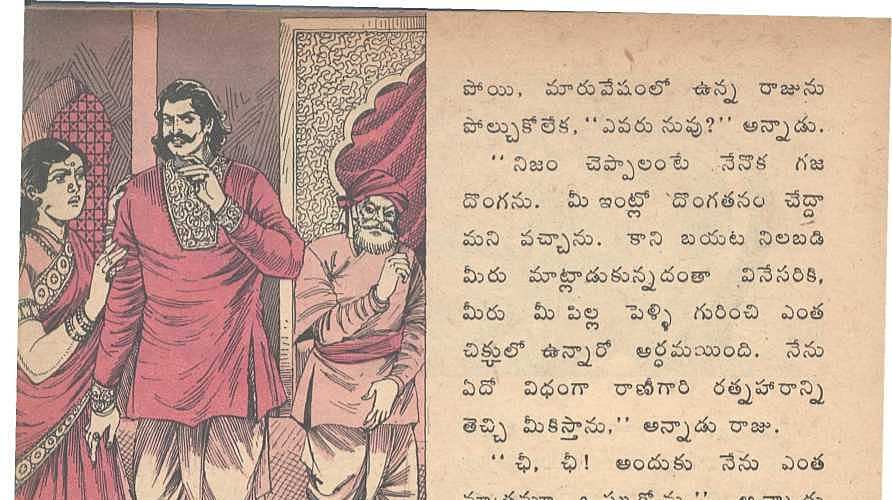 పోయి, మారువేషంలో ఉన్న రాజును
పోల్చుకోలేక, ‘‘ఎవరు నువు?’’ అన్నాడు.
‘‘నిజం చెప్పాలంటే నేనొక గజ
దొంగను. మీ ఇంట్లో దొంగతనం చేద్దా
మని వచ్చాను. కాని బయట నిలబడి
మీరు మాట్లాడుకున్నదంతా వినేసరికి,
మీరు మీ పిల్ల పెళ్ళి గురించి ఎంత
చిక్కులో ఉన్నారో అర్థమయింది. నేను
ఏదో విధంగా రాణీగారి రత్నహారాన్ని
తెచ్చి మీకిస్తాను,’’ అన్నాడు రాజు.
‘‘ఛీ, ఛీ! అందుకు నేను ఎంత